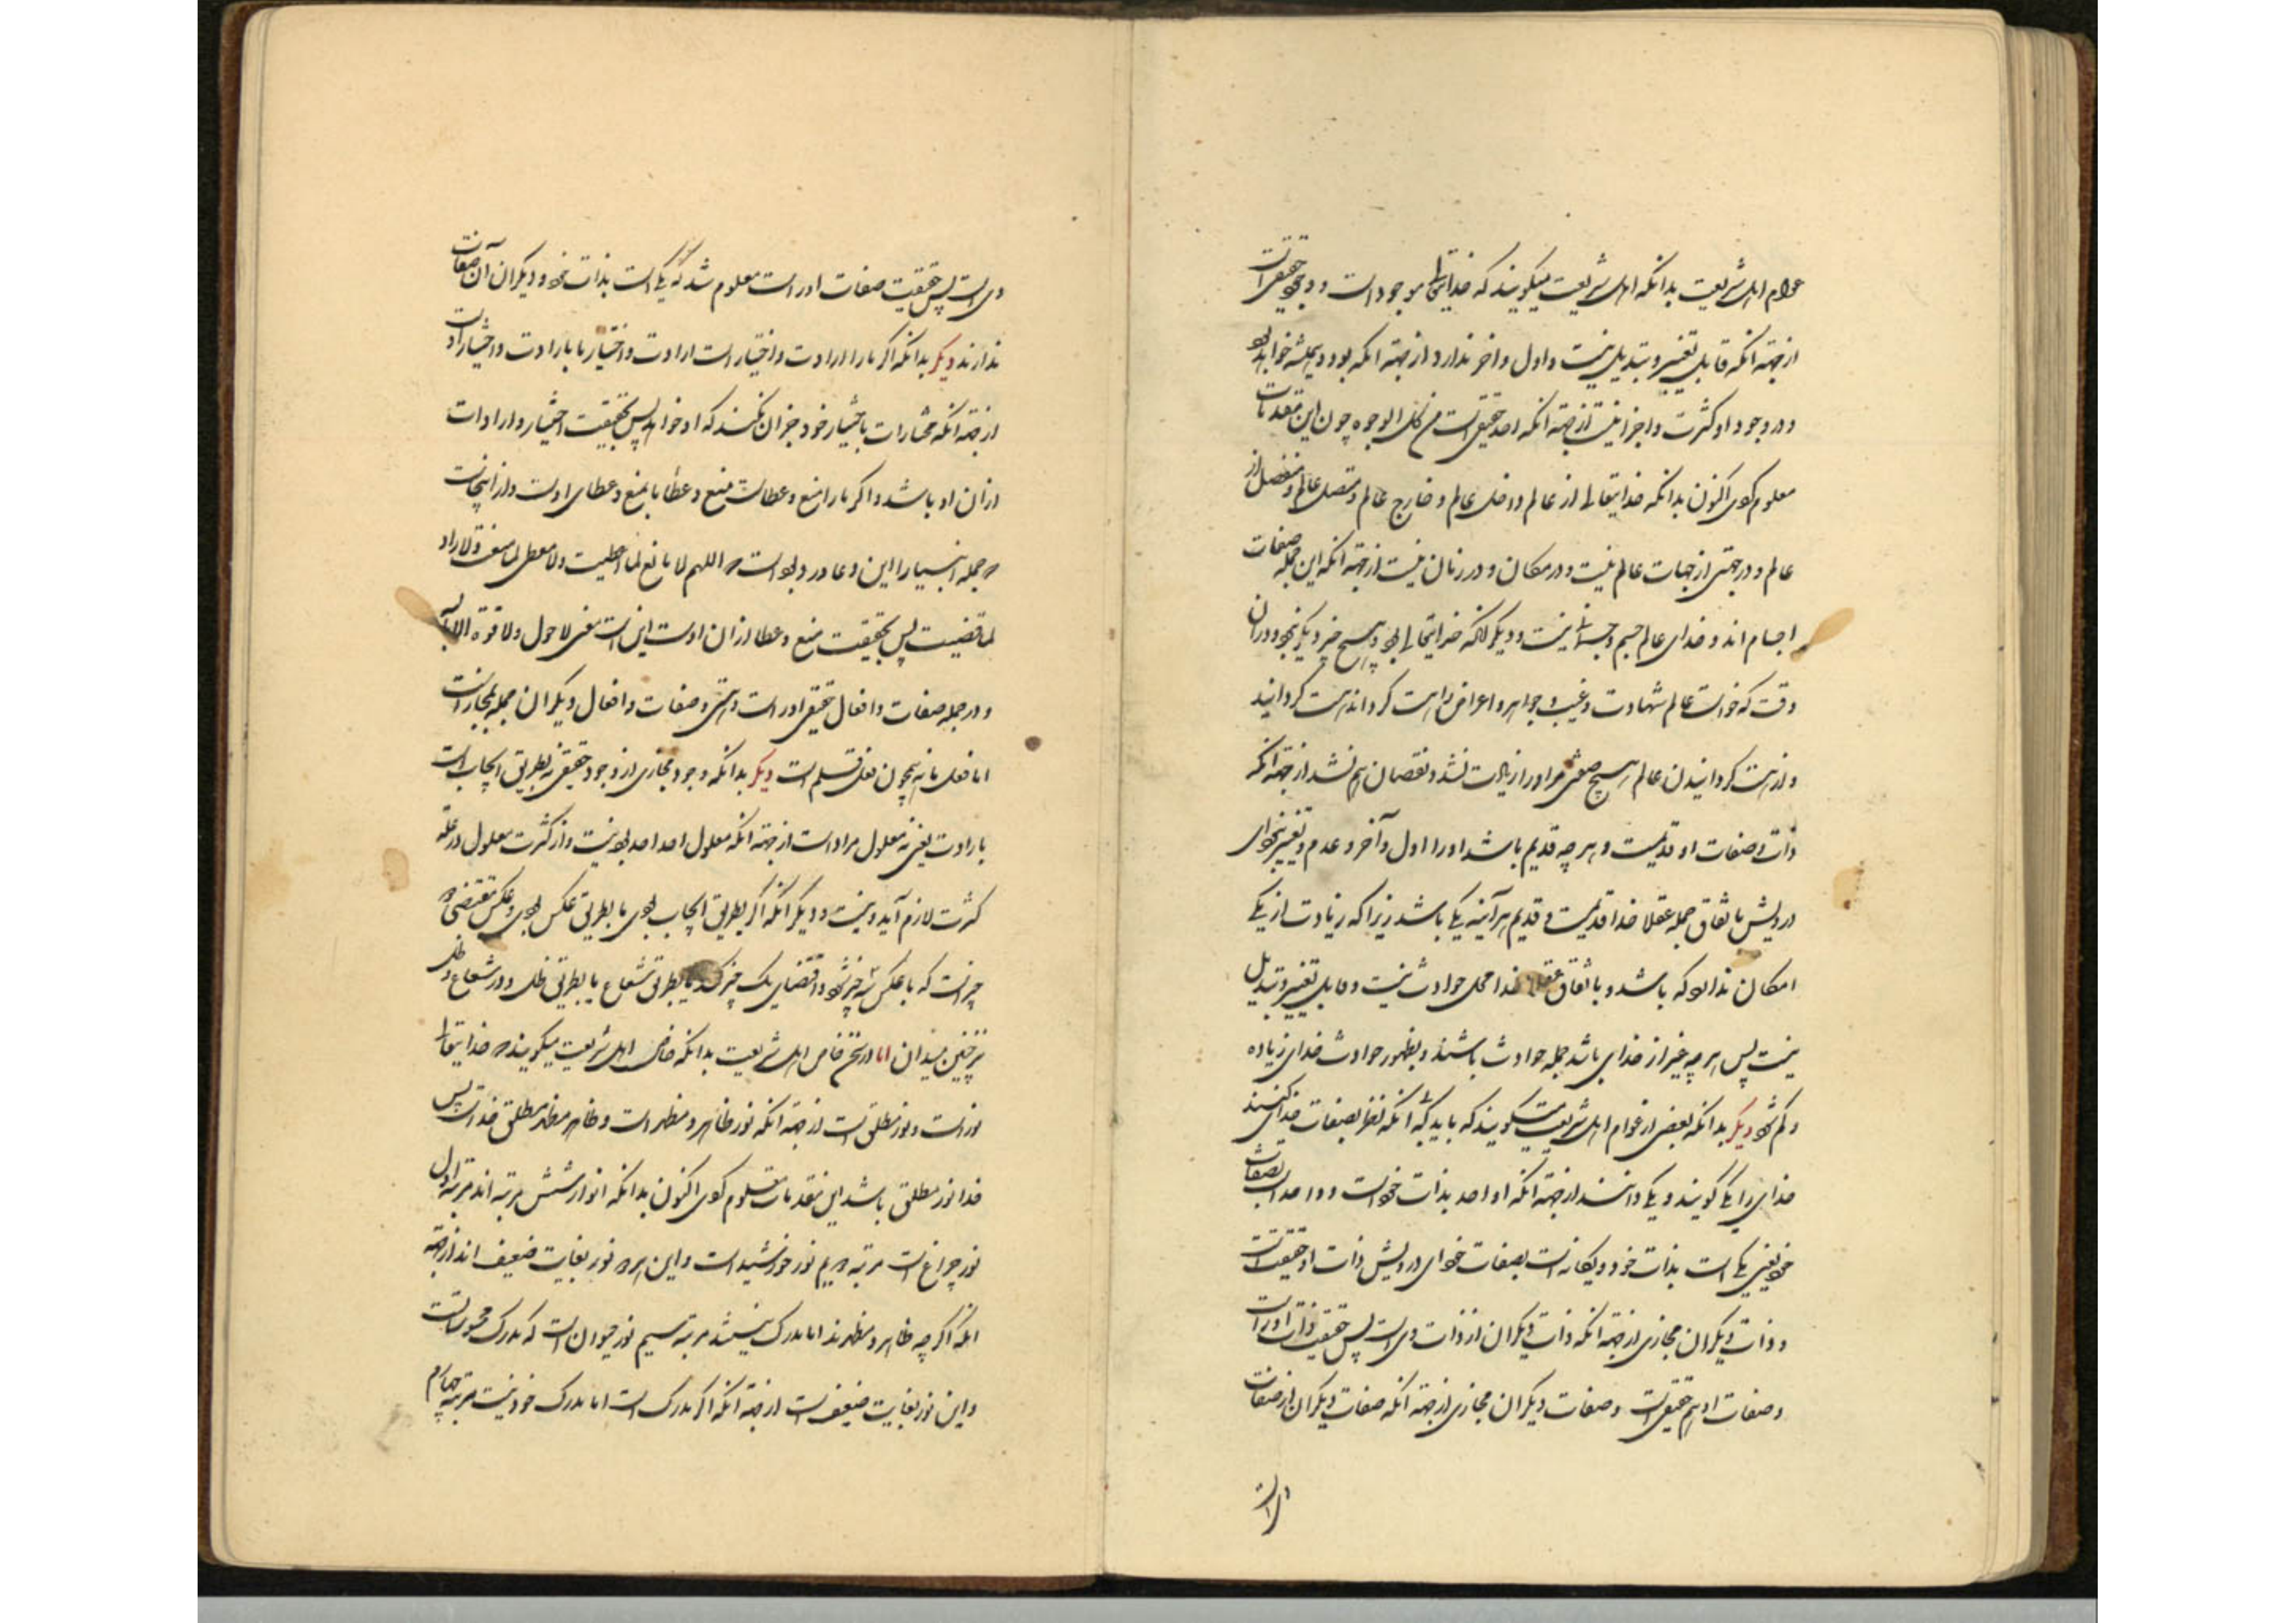 عوام اهل شریعت بدانکه اهل شریعت میکویند که خدایتعالی موجود است و وجود حقیقی است
از جهة آنکه قابل تغییر و تبدیل نیست و اول و آخر ندارد از جهة آنکه بود و همیشه خواهد بود
و در وجود او کثرت و اجزا نیست از جهة آنکه احد حقیقی است من کل الوجوه چون این مقدمات
معلوم کردی اکنون بدانکه خدایتعالی از عالم و داخل عالم و خارج عالم و متصل عالم و منفصل از
عالم و در جهتی از جهات عالم نیست و در مکان و در زمان نیست از جهة آنکه این جمله صفات
اجسام اند و خدای عالم جسم و جسمانی نیست و دیگر آنکه خدایتعالی بود و هیچ چیز دیگر نبود در آن
وقت که خواست عالم شهادت و غیب و جواهر و اعراض را هست گرداند هست گردانید
و از هست گردانیدن عالم هیچ صفتی مر او را زیادت نشد و نقصان هم نشد از جهة آنکه
ذات و صفات او قدیمست و هر چه قدیم باشد او را اول و آخر و عدم و تغییر نبود ای
درویش باتفاق جمله عقلا خدا قدیمست و قدیم هر آینه یکی باشد زیرا که زیادت از یکی
امکان ندارد که باشد و باتفاق عقلا خدا محل حوادث نیست و قابل تغییر و تبدیل
نیست پس هر چه غیر از خدای باشد جمله حوادث باشند و بظهور حوادث خدای زیاده
و کم نشود دیگر بدانکه بعضی از عوام اهل شریعت میکویند که باید که آنکه نظر بصفات خدای کنند
خدای را یکی گویند و یکی دانند از جهة آنکه او احد بذات خود است و واحد است بصفات
خود یعنی یکی است بذات خود و یگانه است بصفات خود ای درویش ذات او حقیقی است
و ذات دیگران مجازی از جهة آنکه ذات دیگران از ذات وی است پس حقیقت ذات او راست
و صفات او هم حقیقی است و صفات دیگران مجازی از جهة آنکه صفات دیگران از صفات
وی است پس حقیقت صفات او راست معلوم شد که یکی است بذات خود و دیگران آن صفات
ندارند دیگر بدانکه اگر ما را ارادت و اختیار است ارادت و اختیار ما بارادت و اختیار اوست
از جهة آنکه مختارات باختیار خود جز آن نکنند که او خواهد پس بحقیقت اختیار و ارادت
از آن او باشد و اگر ما را منع و عطاست منع و عطا ما بمنع و عطای اوست و از اینجاست
جمله انبیا را این دعا در بوده است اللهم لا مانع لما اعطیت ولا معطی لما منعت ولا راد
لما قضیت پس بحقیقت منع و عطا از آن اوست اینست معنی لا حول ولا قوة الا بالله
و در جمله صفات و افعال حقیقی او راست و هستی و صفات و افعال دیگران جمله مجازاست
اما فعل ما نه همچون فعل قلم است دیگر بدانکه وجود مجازی از وجود حقیقی نه بطریق ایجاب است
بارادت یعنی نه معلول مراد است از جهة آنکه معلول احد احد بود نیست و از کثرت معلول در علة
کثرت لازم آید و نیست و دیگر آنکه اگر بطریق ایجاب بودی یا بطریق عکس بودی و عکس مقتضی
چیزاست که با عکس شه چیز شود و اقتضای یک چیز کند یا بطریق شعاع یا بطریق ظل و در شعاع و ظل
نیز چنین میدان اما در سخن خاص اهل شریعت بدانکه خاص اهل شریعت میکویند خدایتعالی
نور است و نور مطلق است از جهة آنکه نور ظاهر و مظهر است و ظاهر مظهر مطلق خداست پس
خدا نور مطلق باشد این مقدمات معلوم کردی اکنون بدانکه انوار شش مرتبه اند مرتبه اول
نور چراغ است مرتبه دویم نور خورشید است و این هر دو نور بغایت ضعیف اند از جهة
آنکه اگر چه ظاهر و مظهرند اما مدرک نیستند مرتبه سیم نور حیوان است که مدرک محسوسات است
و این نور بغایت ضعیف است از جهة آنکه اگر مدرک است اما مدرک خود نیست مرتبه چهارم